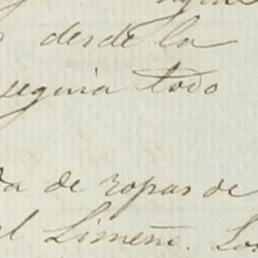 desde la
seguia todo
da de ropas de
el Limeño. Los